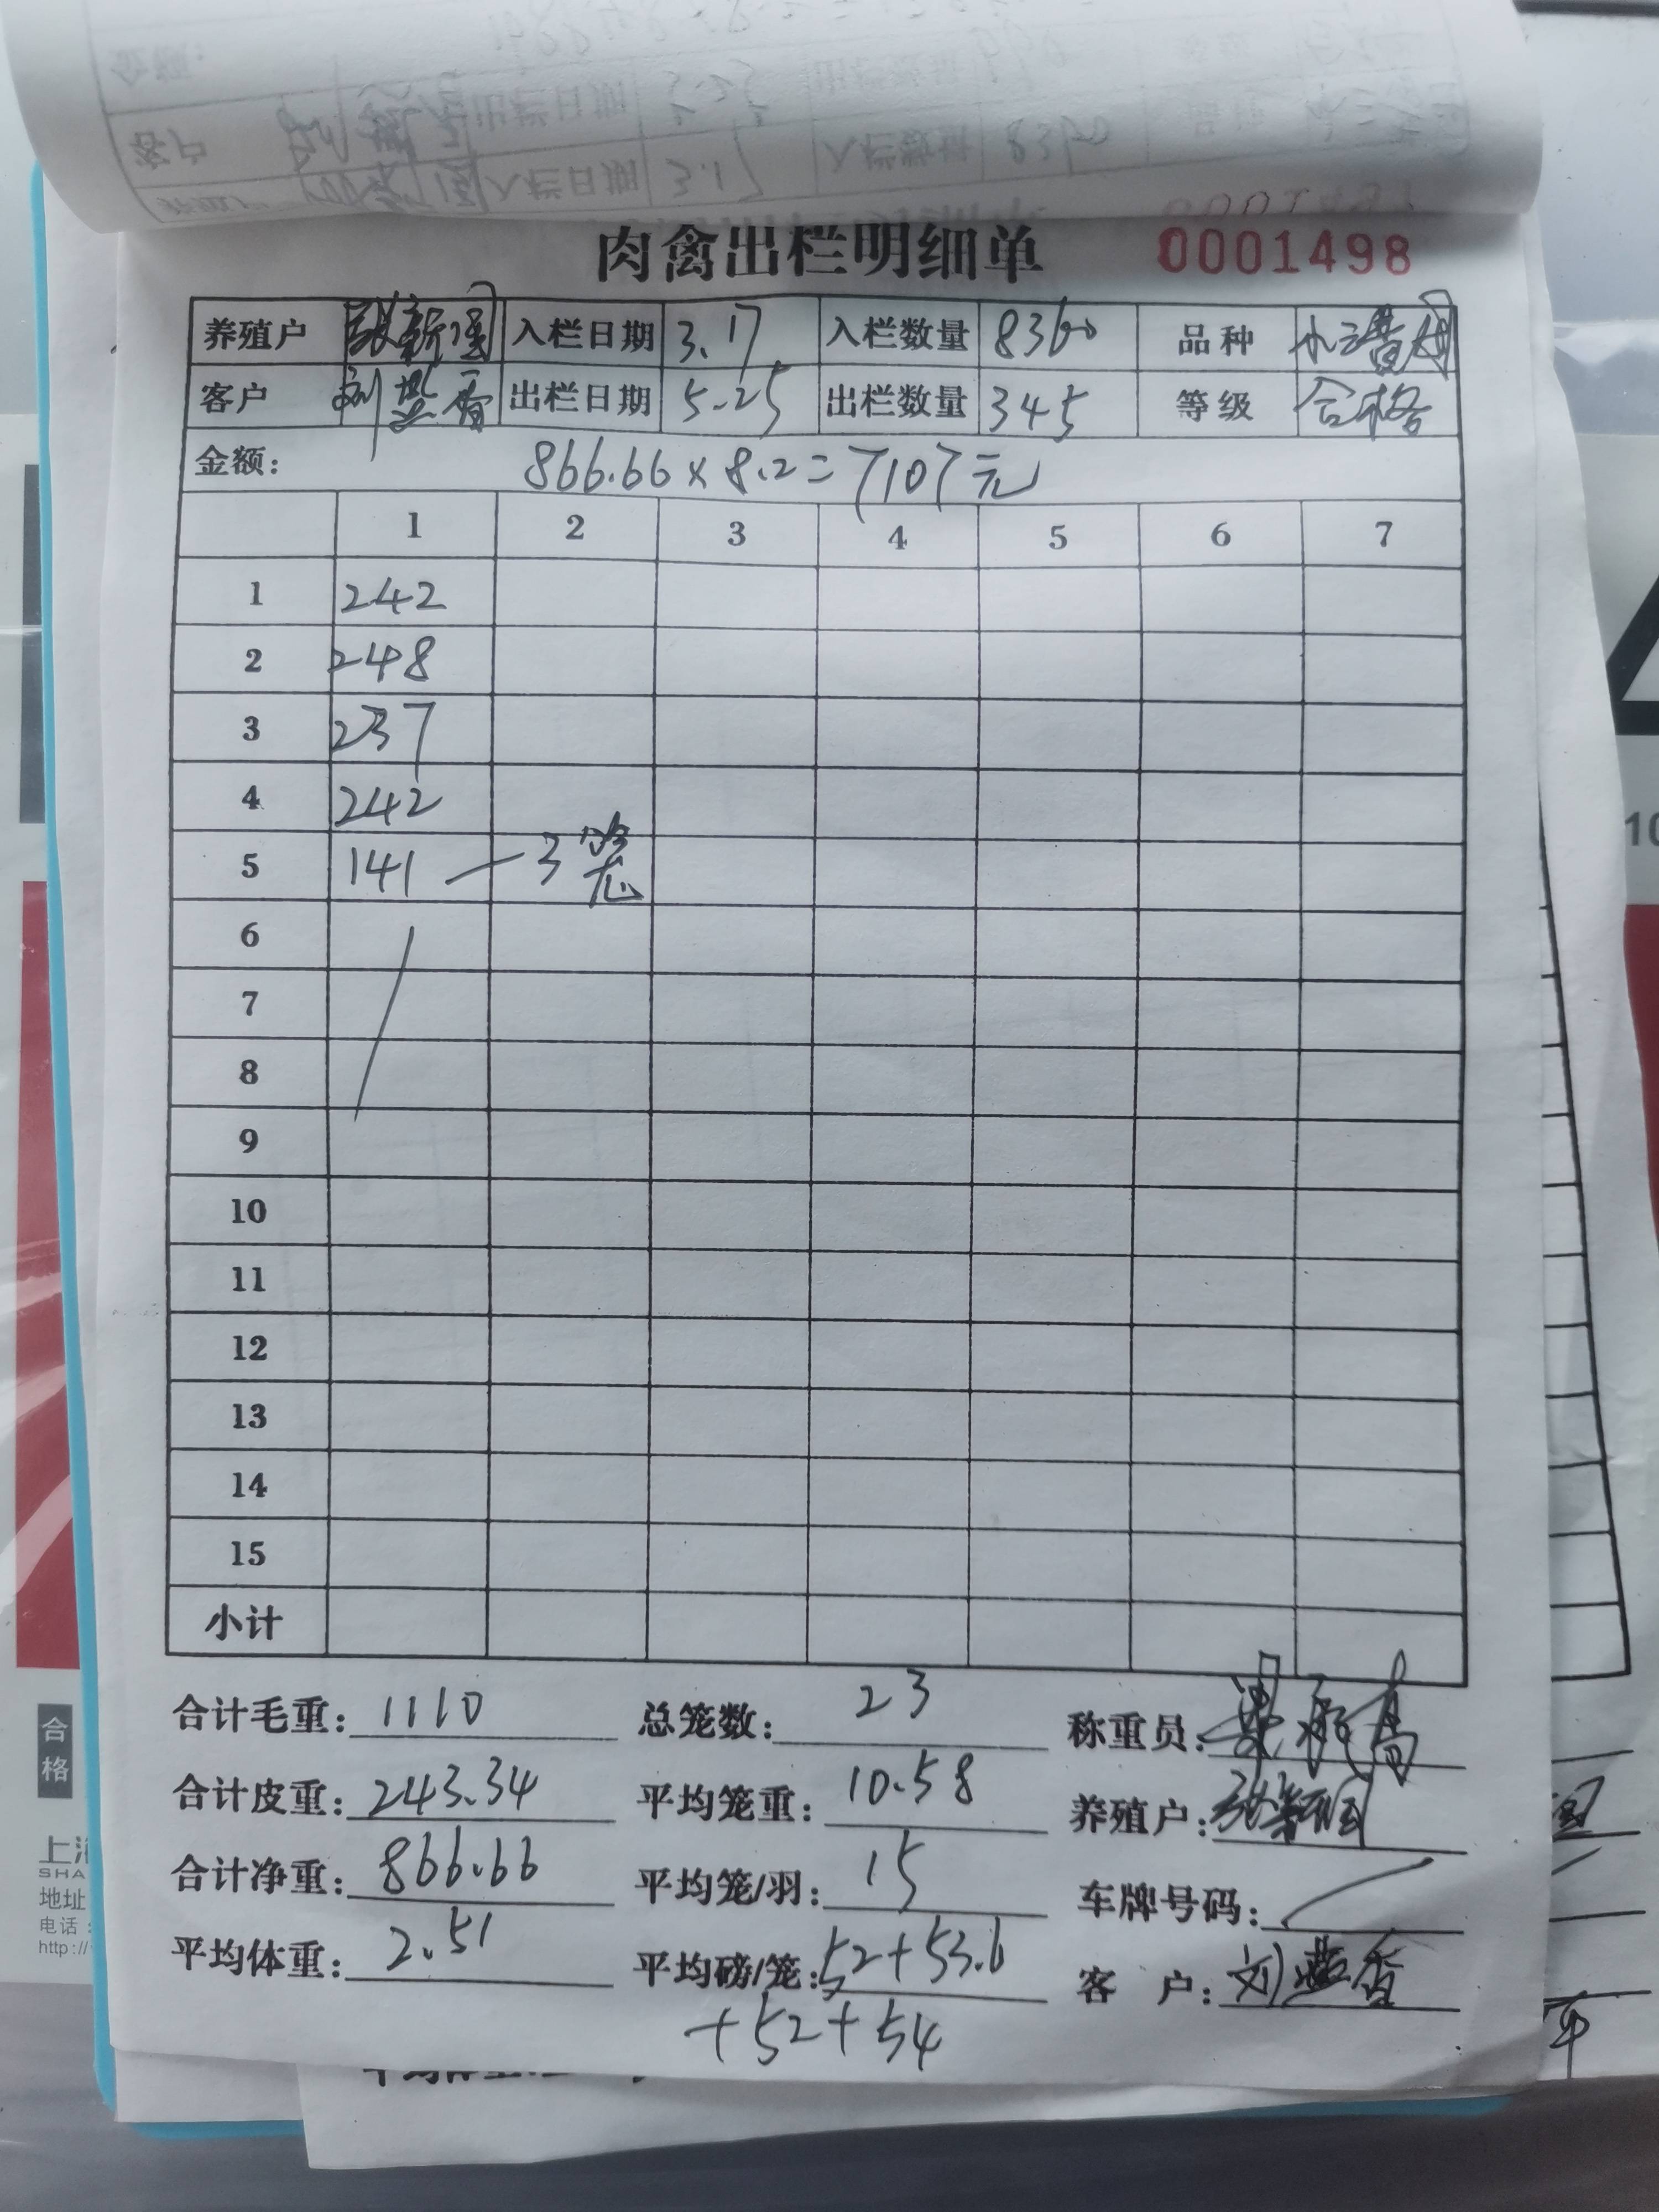 0001498
肉禽出栏明细单
养殖户 张新国 入栏日期 3.17 入栏数量 8360 品种
客户 刘 香 出栏日期 5.25 出栏数量 345 等级 合格
金额: 866.66×8.2=7107元
1 2 3 4 5 6 7
1 242
2 248
3 237
4 242
5 141 — 3笼
6
7
8
9
10
11
12
13
14
15
小计
合计毛重: 1110 总笼数: 23 称重员:
合计皮重: 243.34 平均笼重: 10.58 养殖户: 张新国
合计净重: 866.66 平均笼/羽: 15 车牌号码:
平均体重: 2.51 平均磅/笼: 52+53.6 客 户: 刘 香
+52+54
合格
地址
电话:
http://